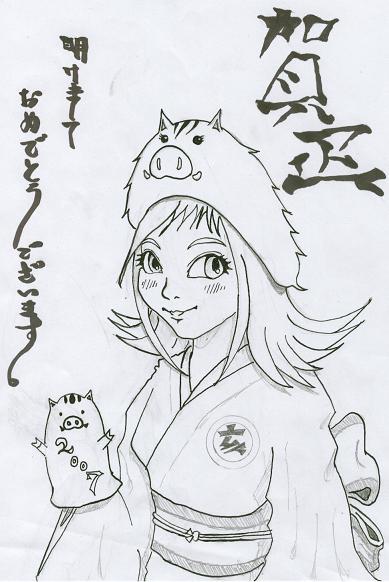 賀正
明けまして
おめでとうございます
2007